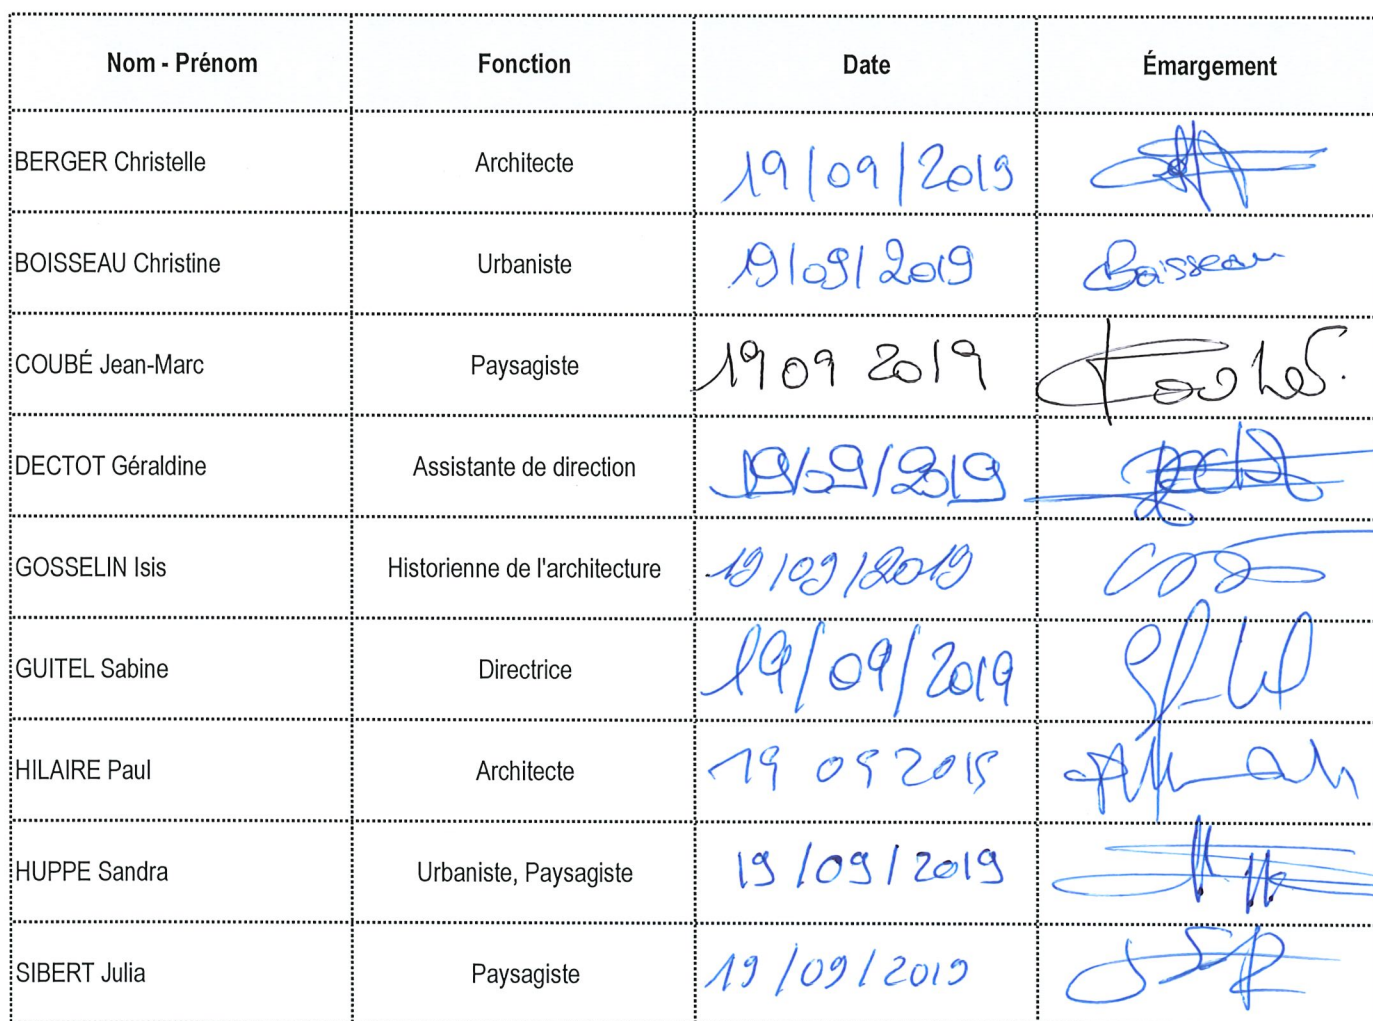 Nom - Prénom Fonction Date Émargement
BERGER Christelle Architecte 19/09/2019
BOISSEAU Christine Urbaniste 19/09/2019 Boisseau
COUBÉ Jean-Marc Paysagiste 19 09 2019
DECTOT Géraldine Assistante de direction 19/09/2019
GOSSELIN Isis Historienne de l'architecture 19/09/2019
GUITEL Sabine Directrice 19/09/2019
HILAIRE Paul Architecte 19 09 2019
HUPPE Sandra Urbaniste, Paysagiste 19/09/2019
SIBERT Julia Paysagiste 19/09/2019